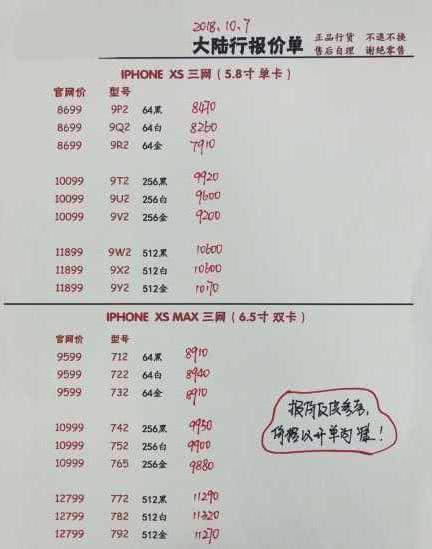 2018.10.7
大陆行报价单
正品行货 不退不换
售后自理 谢绝零售
IPHONE XS 三网（5.8寸 单卡）
官网价 型号
8699 9P2 64黑 8470
8699 9Q2 64白 8260
8699 9R2 64金 7910
10099 9T2 256黑 9920
10099 9U2 256白 9600
10099 9V2 256金 9200
11899 9W2 512黑 10600
11899 9X2 512白 10600
11899 9Y2 512金 10170
IPHONE XS MAX 三网（6.5寸 双卡）
官网价 型号
9599 712 64黑 8910
9599 722 64白 8940
9599 732 64金 8910
10999 742 256黑 9950
10999 752 256白 9900
10999 765 256金 9880
报价仅供参考，
价格以开单为准！
12799 772 512黑 11290
12799 782 512白 11320
12799 792 512金 11270